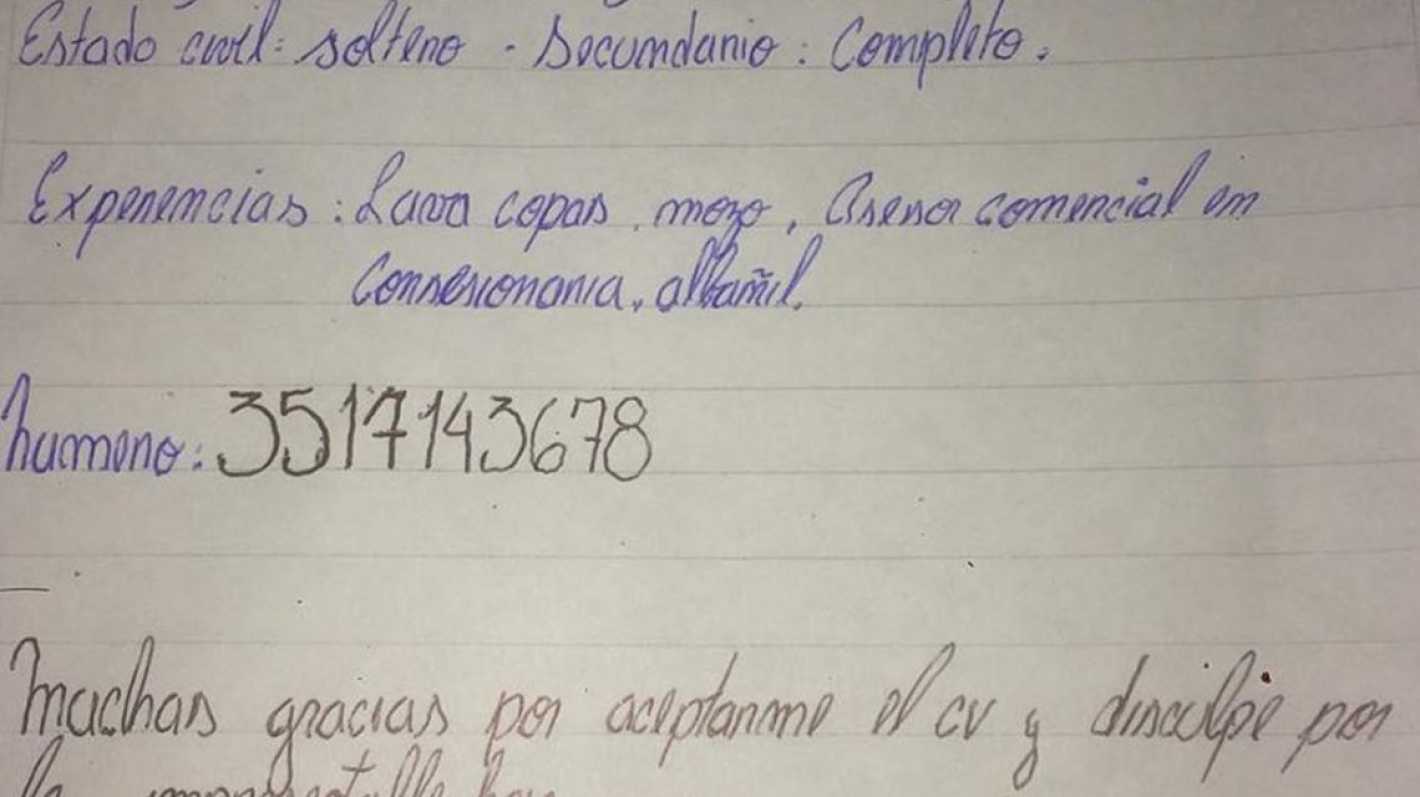 Estado civil: soltero - Secundario: Completo.
Experiencias: Lava copas, mozo, Asesor comercial en
Consesionaria, albañil.
numero: 3517143678
muchas gracias por aceptarme el cv y disculpe por